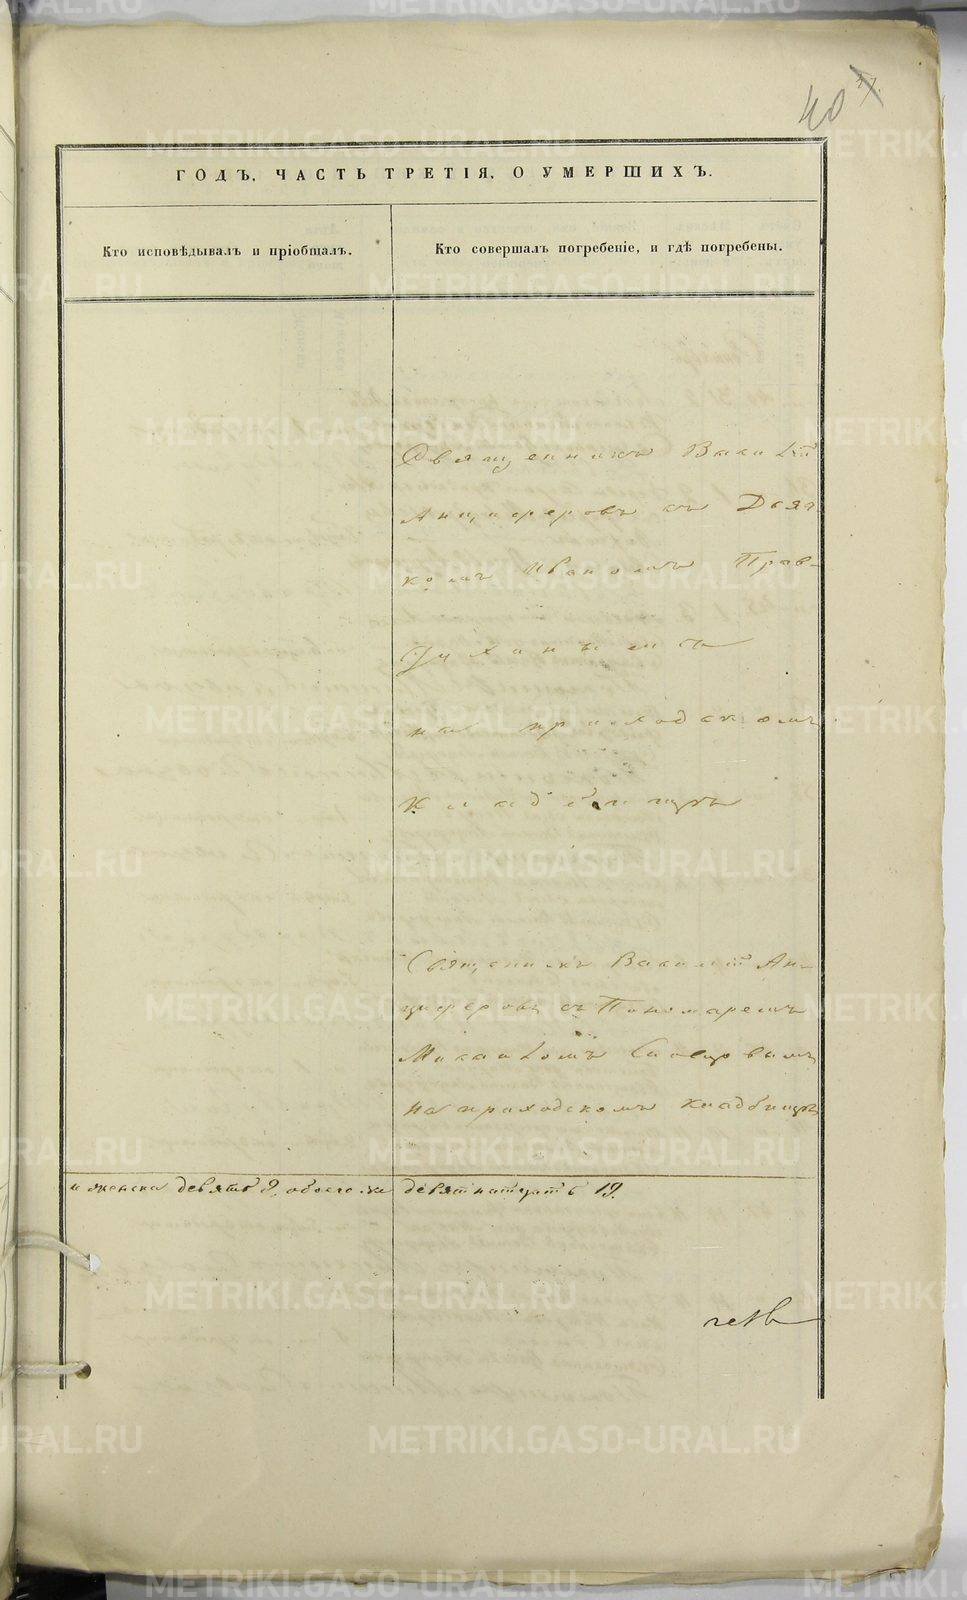 40 47.
ГОДЪ, ЧАСТЬ ТРЕТІЯ, О УМЕРШИХЪ.
Кто исповѣдывалъ и пріобщалъ.
Кто совершалъ погребеніе, и гдѣ погребены.
Священникъ Василій
Анциферовъ съ Дьяч
комъ Иваномъ Прав-
на приходскомъ
кладбищѣ
Священникъ Василій Ан-
циферовъ съ Пономаремъ
Михаиломъ
на приходскомъ кладбищѣ
и женска девять 9, обоего же девятнатцать 19.
METRIKI.GASO-URAL.RU